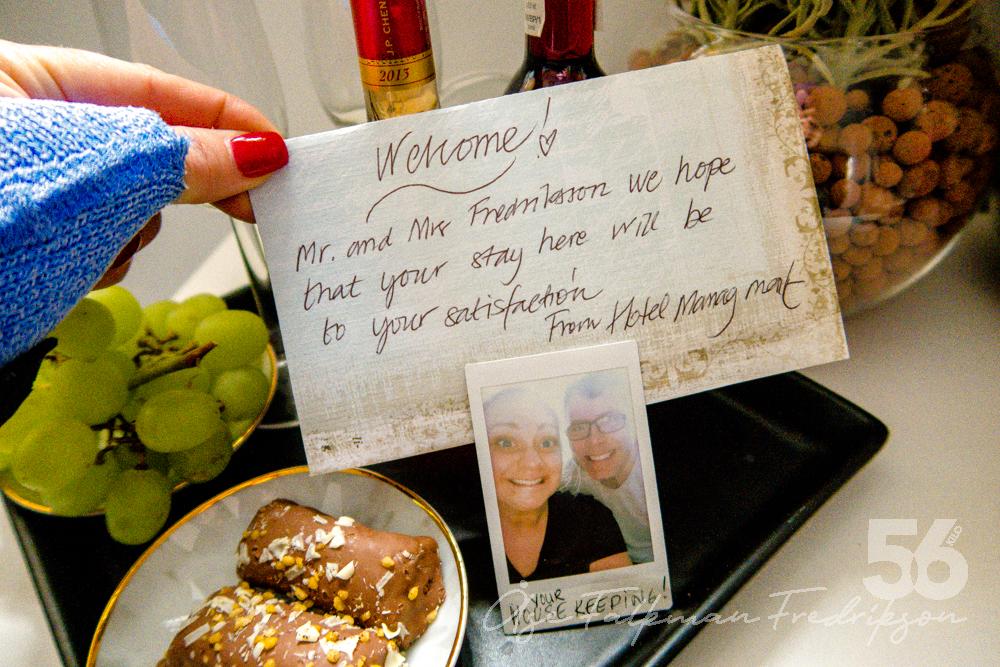 J.P. CHEN
2013
Welcome!
Mr. and Mrs Fredriksson we hope
that your stay here will be
to your satisfaction
From Hotel Managment
YOUR
HOUSE KEEPING!
56
KILO
Falkman Fredrikson